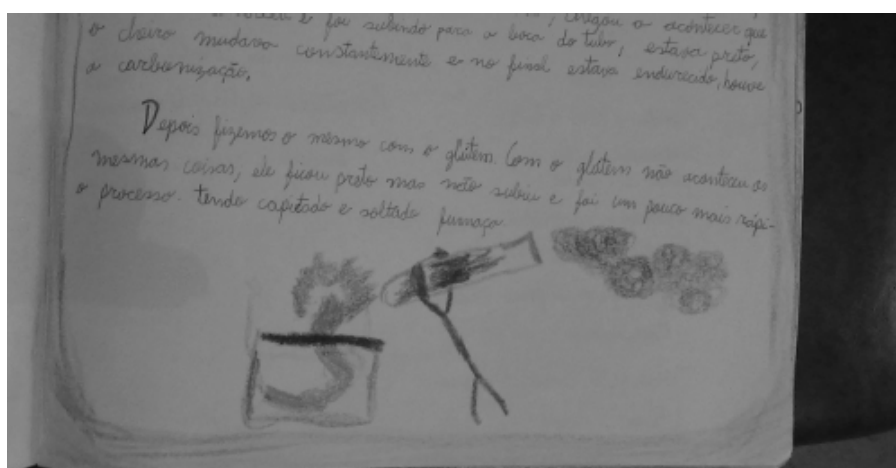 e foi subindo para a boca do tubo, chegou a acontecer que
o cheiro mudava constantemente e no final estava preto,
estava endurecido, houve
a carbonização.
Depois fizemos o mesmo com o glútem. Com o glútem não aconteceu as
mesmas coisas, ele ficou preto mas não subiu e foi um pouco mais rápi-
o processo. tendo capitado e soltado fumaça